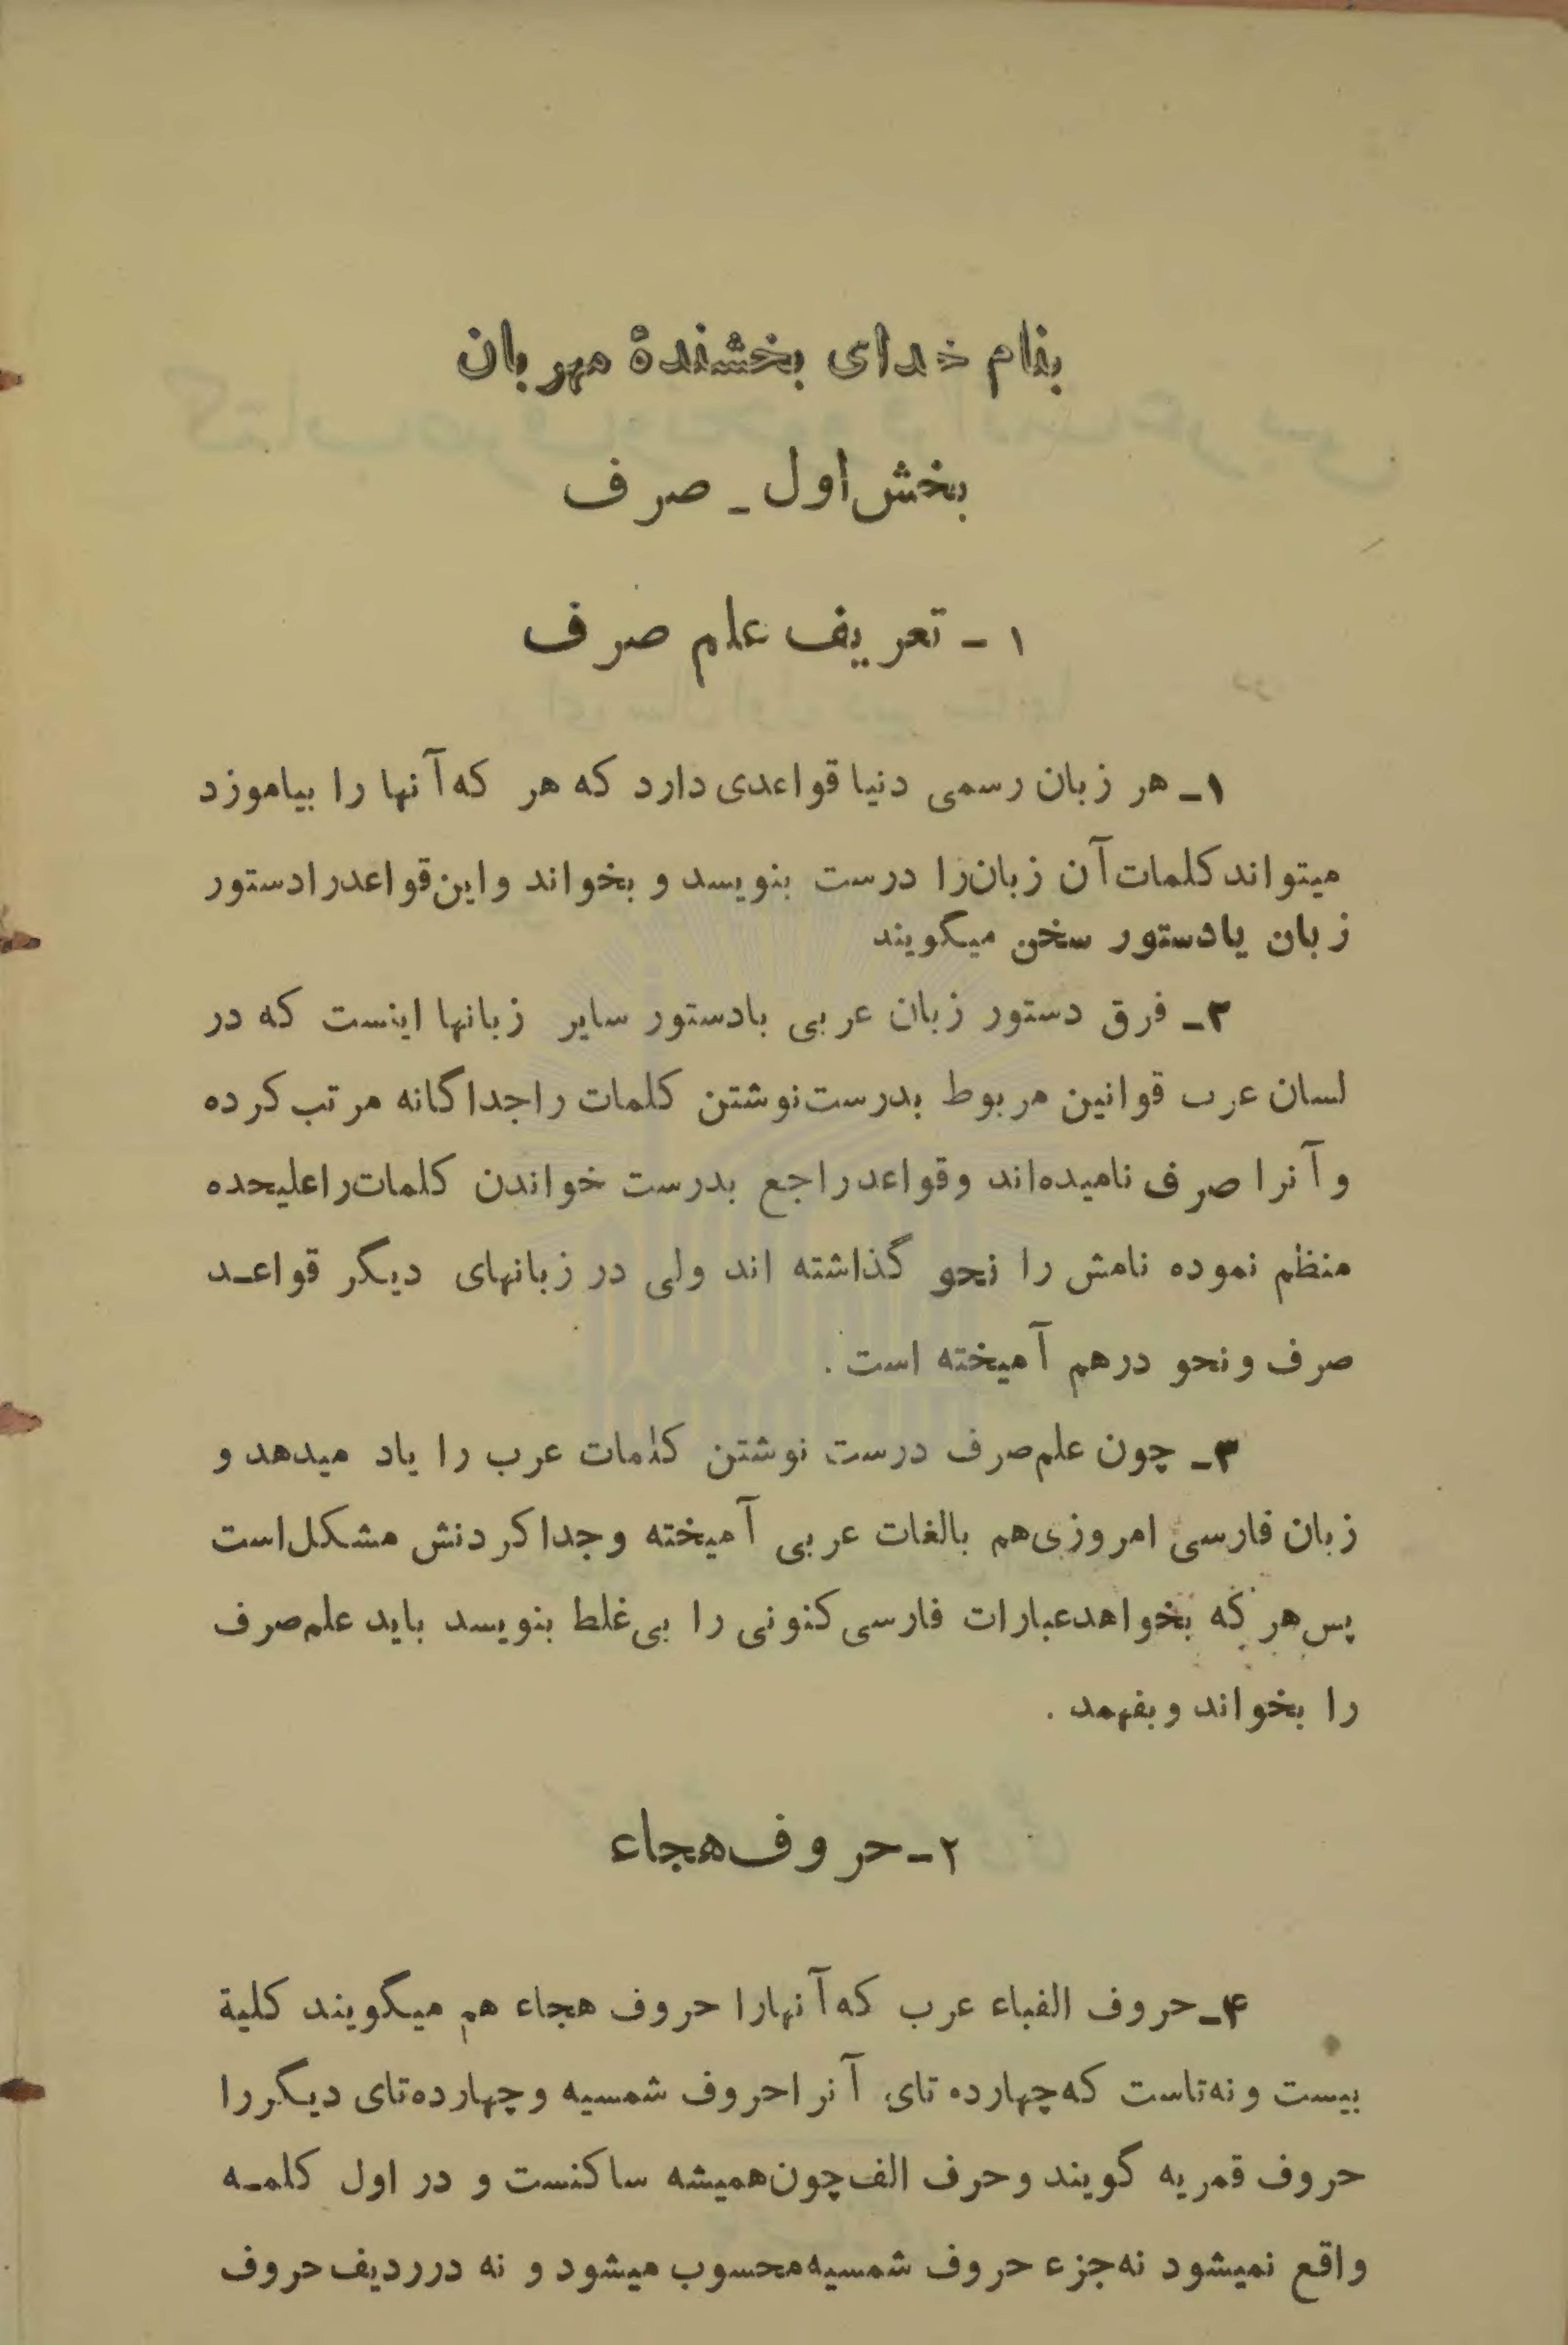 بنام خدای بخشندهٔ مهربان
بخش اول ـ صرف
۱ ـ تعریف علم صرف
۱ـ هر زبان رسمی دنیا قواعدی دارد که هر که آنها را بیاموزد
میتواند کلمات آن زبان را درست بنویسد و بخواند و این قواعد را دستور
زبان یا دستور سخن میگویند
۲ـ فرق دستور زبان عربی با دستور سایر زبانها اینست که در
لسان عرب قوانین مربوط بدرست نوشتن کلمات را جداگانه مرتب کرده
و آنرا صرف نامیده‌اند و قواعد راجع بدرست خواندن کلمات را علیحده
منظم نموده نامش را نحو گذاشته اند ولی در زبانهای دیگر قواعـد
صرف و نحو درهم آمیخته است .
۳ـ چون علم صرف درست نوشتن کلمات عرب را یاد میدهد و
زبان فارسی امروزی هم بالغات عربی آمیخته و جدا کردنش مشکل است
پس هر که بخواهد عبارات فارسی کنونی را بی غلط بنویسد باید علم صرف
را بخواند و بفهمد .
۲ـ حروف هجاء
۴ـ حروف الفباء عرب که آنهارا حروف هجاء هم میگویند کلیة
بیست و نه تاست که چهارده تای آنرا حروف شمسیه و چهارده تای دیگر را
حروف قمریه گویند و حرف الف چون همیشه ساکنست و در اول کلمـه
واقع نمیشود نه جزء حروف شمسیه محسوب میشود و نه در ردیف حروف